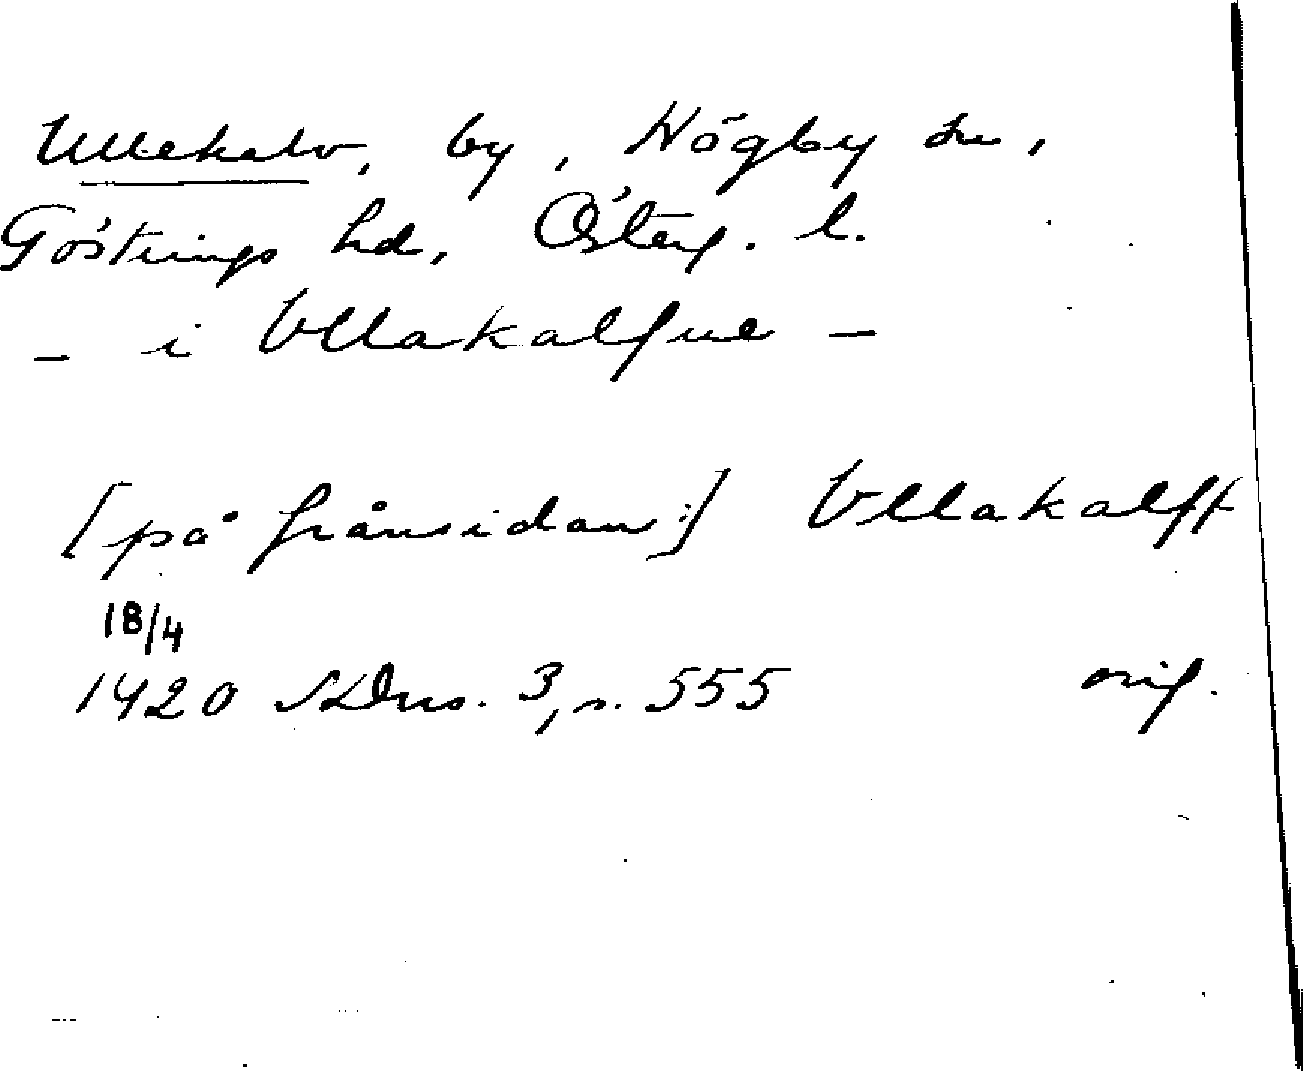 Ullekalv, by, Högby sn,
Göstrings hd, Österg. l.
- i Vllakalfue -
[på frånsidan:] Vllakalff
18/4
1420 SDns. 3, s. 555 orig.